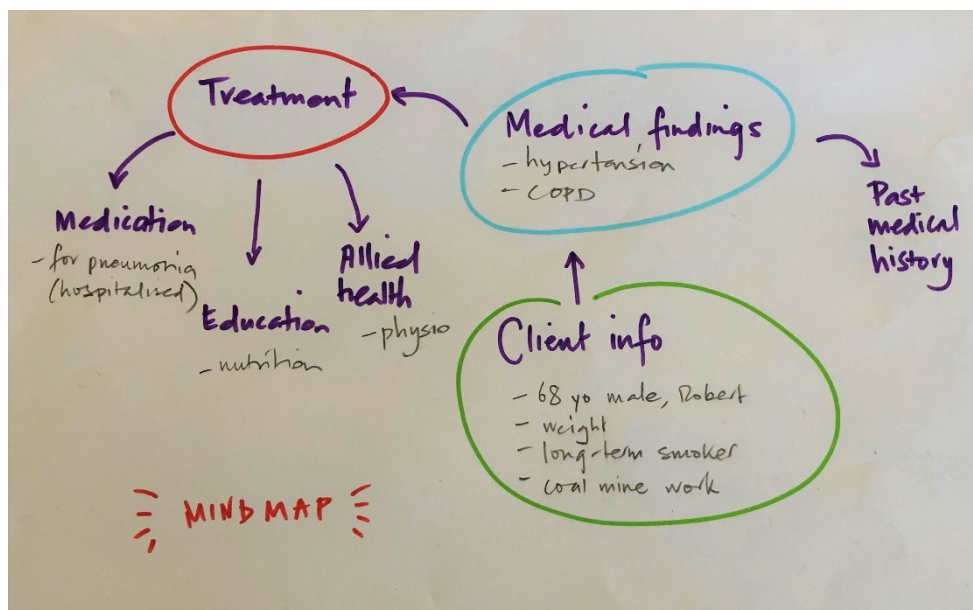 Treatment
Medical findings
- hypertension
- COPD
Past
medical
history
Medication
- for pneumonia
(hospitalised)
Education
- nutrition
Allied
health
- physio
Client info
- 68 yo male, Robert
- weight
- long-term smoker
- coal mine work
MIND MAP